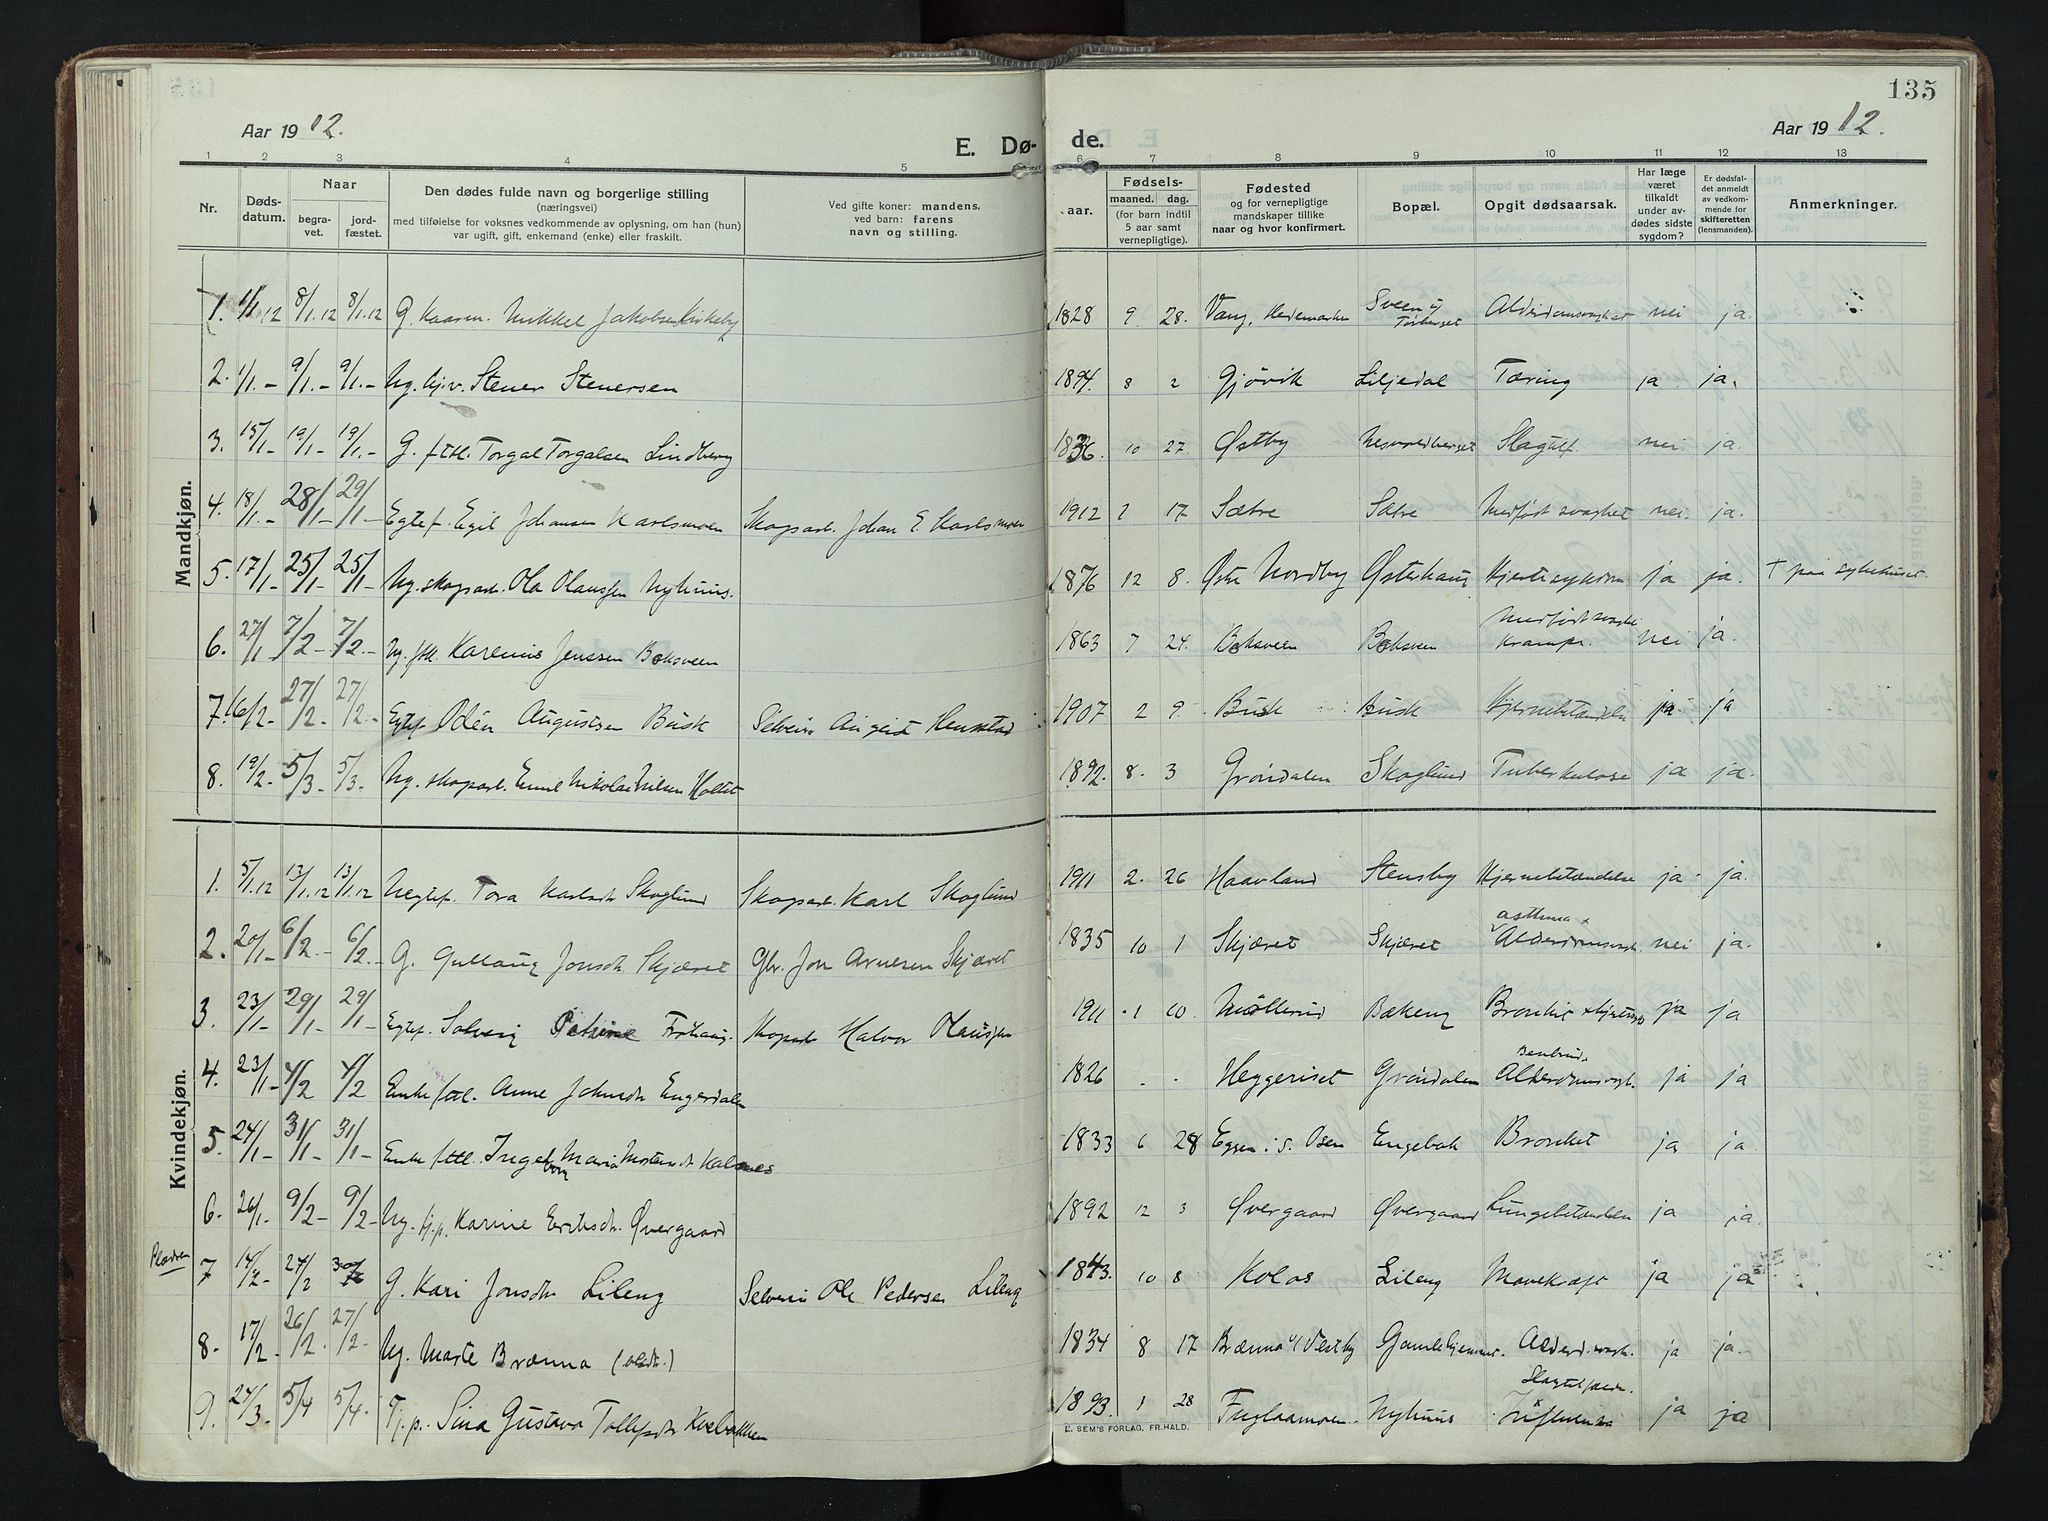 135
Aar 1912.
E. Dø-
de.
Aar 1912.
1 2 3 4 5 6 7 8 9 10 11 12 13
Nr.
Døds-
datum.
Naar
begra-
vet.
jord-
fæstet.
Den dødes fulde navn og borgerlige stilling
(næringsvei)
med tilføielse for voksnes vedkommende av oplysning, om han (hun)
var ugift, gift, enkemand (enke) eller fraskilt.
Ved gifte koner: mandens.
ved barn: farens
navn og stilling.
aar.
Fødsels-
maaned. dag.
(for barn indtil
5 aar samt
vernepligtige).
Fødested
og for vernepligtige
mandskaper tillike
naar og hvor konfirmert.
Bopæl.
Opgit dødsaarsak.
Har læge
været
tilkaldt
under av-
dødes sidste
sygdom?
Er dødsfal-
det anmeldt
av vedkom-
mende for
skifteretten
(lensmanden).
Anmerkninger.
Mandkjøn.
1. 1/1 12 8/1.12 8/1.12 G. Kaarm. Mikkel Jakobsen Kirkeby 1828 9. 28. Vang, Hedemarken nei ja.
2. 1/1.- 9/1.- 9/1.- Ug. Stener Stenersen 1894. 8 2 Gjøvik Liljedal Tæring ja ja.
3. 15/1.- 19/1.- 19/1.- G. fttl. Torgal Torgalsen Lindberg 1836. 10 27. Østby Slagtilf. nei ja.
4. 18/1.- 28/1- 29/1- Egtef. Egil Johansen Karlsmoen Skogsarb. Johan E. Karlsmoen 1912 1 17 Sætre Sætre Medfødt svaghet nei. ja.
5. 17/1- 25/1- 25/1- Ug. skogsarb. Ola Olaussen Nyhuus. 1876 12 8. Østre Nordby Østerhaug Hjertesykdom ja ja. † paa sykehuset.
6. 27/1 7/2- 7/2.- Ug. fttl. Karenius Jenssen Boksveen 1863 7 24. Boksveen Boksveen Medfødt svaghet Krampe. nei ja.
7. 16/2- 27/2- 27/2.- Egtef. Odén Augustsen Busk Selveier 1907 2 9. Busk Busk Hjernebetændelse ja ja
8. 19/2- 5/3- 5/3- Ug. skogsarb. Emil Nikolai Nilsen Holtet 1892. 8. 3 Grøndalen Skoglund Tuberkulose ja ja.
Kvindekjøn.
1. 5/1.12 13/1.12 13/1.12 Uegtef. Tora Karlsdt. Skoglund Skogsarb. Karl Skoglund 1911 2. 26 Haavland Stensby Hjernebetændelse ja. ja.
2. 20/1- 6/2- 6/2- G. Gullaug Jonsdt. Skjæret Gbr. Jon Arnesen Skjæret 1835 10 1 Skjæret Skjæret asthma + Alderdomssvagh. nei ja.
3. 23/1- 29/1- 29/1- Egtef. Solveig Petrine Skogsarb. Halvor Olaussen 1911 1 10 Møllerud Bækeng ja ja
4. 23/1- 4/2 4/2 Enke fttl. Anne Johnsdt. Engerdalen 1826 . . Heggeriset Grøndalen Benbrud. Alderdomssvagh. ja ja
5. 24/1- 31/1- 31/1- Enke fttl. Ingeborg Maria Mortensdt. Kalsnes 1833 6 28 Eggen i S. Osen Engebak Bronkit ja ja
6. 26/1- 9/2- 9/2- Ug. tj.p. Karine Eriksdt. Øvergaard 1892 12 3 Øvergaard Øvergaard Lungebetændelse ja ja.
7 14/2- 24/2 G. Kari Jonsdt. Lileng Selveier Ole Pedersen Lileng 1843. 10 8 Kolos Lileng Mavekræft ja ja
8. 17/2 26/2. 27/2. Ug. Marte Brænna 1834 8 17 Brænna u/ Vestby Gamlehjemmet. Alderd.svagh. ja ja.
9. 24/3 5/4 5/4. Tj.p. Sina Gustava Tollefsdt. Kvebakken 1893. 1 28 Fuglaamoen. Nyhuus Influensa ja ja
E. SEM'S FORLAG, FR.HALD.